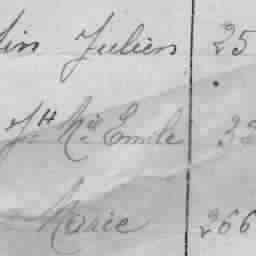 lin Julien 25
Jh Né Emile 33
Marie 266